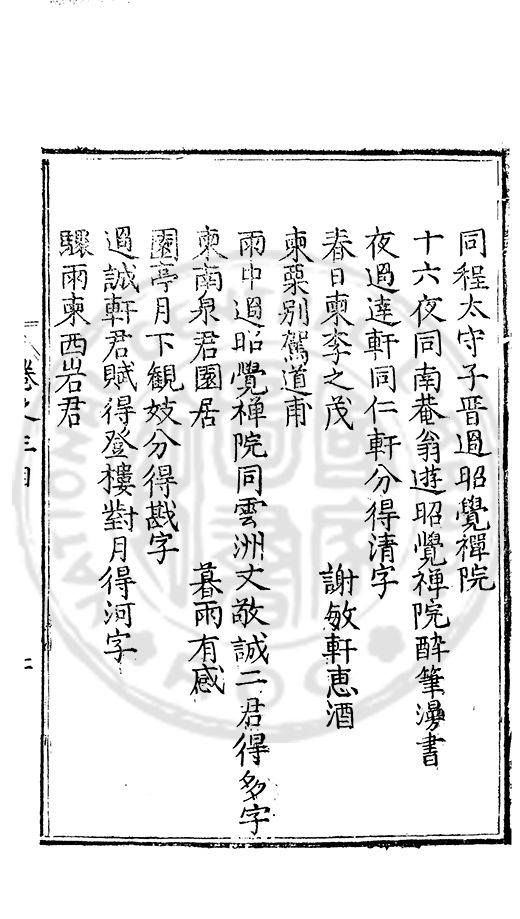 同程太守子晋過昭覺禪院
十六夜同南菴翁遊昭覺禅院醉筆漫書
夜過達軒同仁軒分得清字
春日柬李之茂 謝敏軒惠酒
柬栗别駕道甫
雨中過昭覺禅院同雲洲丈敬誠二君得多字
柬南泉君園居 暮雨有感
園亭月下觀妓分得戡字
過誠軒君賦得登樓對月得河字
驟雨柬西岩君
卷之三目